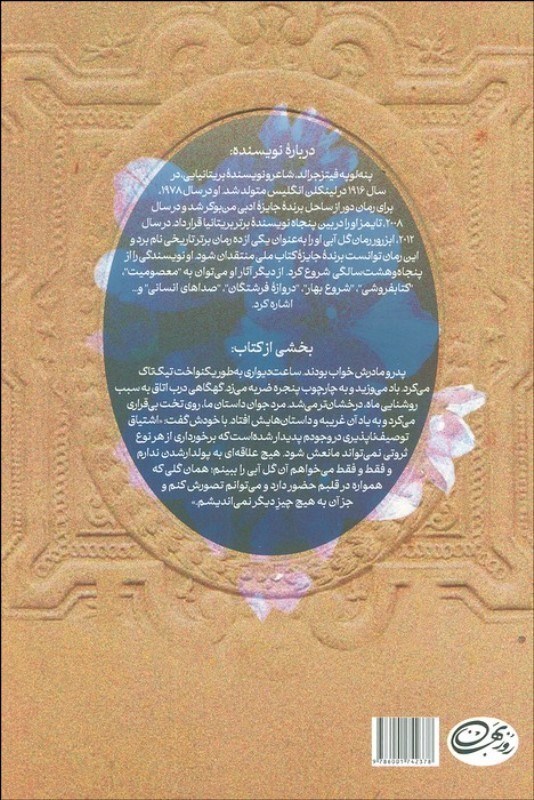 دربارهٔ نویسنده:
پنه‌لوپه فیتزجرالد، شاعر و نویسندهٔ بریتانیایی، در
سال ۱۹۱۶ در لینکلن انگلیس متولد شد. او در سال ۱۹۷۸،
برای رمان دور از ساحل برندهٔ جایزهٔ ادبی من‌بوکر شد و در سال
۲۰۰۸، تایمز او را در بین پنجاه نویسندهٔ برتر بریتانیا قرار داد. در سال
۲۰۱۲، ابزرور رمان گل آبی او را به‌عنوان یکی از ده رمان برتر تاریخی نام برد و
این رمان توانست برندهٔ جایزهٔ کتاب ملی منتقدان شود. او نویسندگی را از
پنجاه‌وهشت‌سالگی شروع کرد. از دیگر آثار او می‌توان به "معصومیت"،
"کتابفروشی"، "شروع بهار"، "دروازهٔ فرشتگان"، "صداهای انسانی" و...
اشاره کرد.
بخشی از کتاب:
پدر و مادرش خواب بودند. ساعت دیواری به‌طور یکنواخت تیک‌تاک
می‌کرد. باد می‌وزید و به چارچوب پنجره ضربه می‌زد. گهگاهی درب اتاق به سبب
روشنایی ماه، درخشان‌تر می‌شد. مرد جوان داستان ما، روی تخت بی‌قراری
می‌کرد و به یاد آن غریبه و داستان‌هایش افتاد. با خودش گفت: «اشتیاق
توصیف‌ناپذیری در وجودم پدیدار شده است که برخورداری از هر نوع
ثروتی نمی‌تواند مانعش شود. هیچ علاقه‌ای به پولدار شدن ندارم
و فقط و فقط می‌خواهم آن گل آبی را ببینم؛ همان گلی که
همواره در قلبم حضور دارد و می‌توانم تصورش کنم و
جز آن به هیچ چیز دیگر نمی‌اندیشم.»
روزبهان
9786001742378